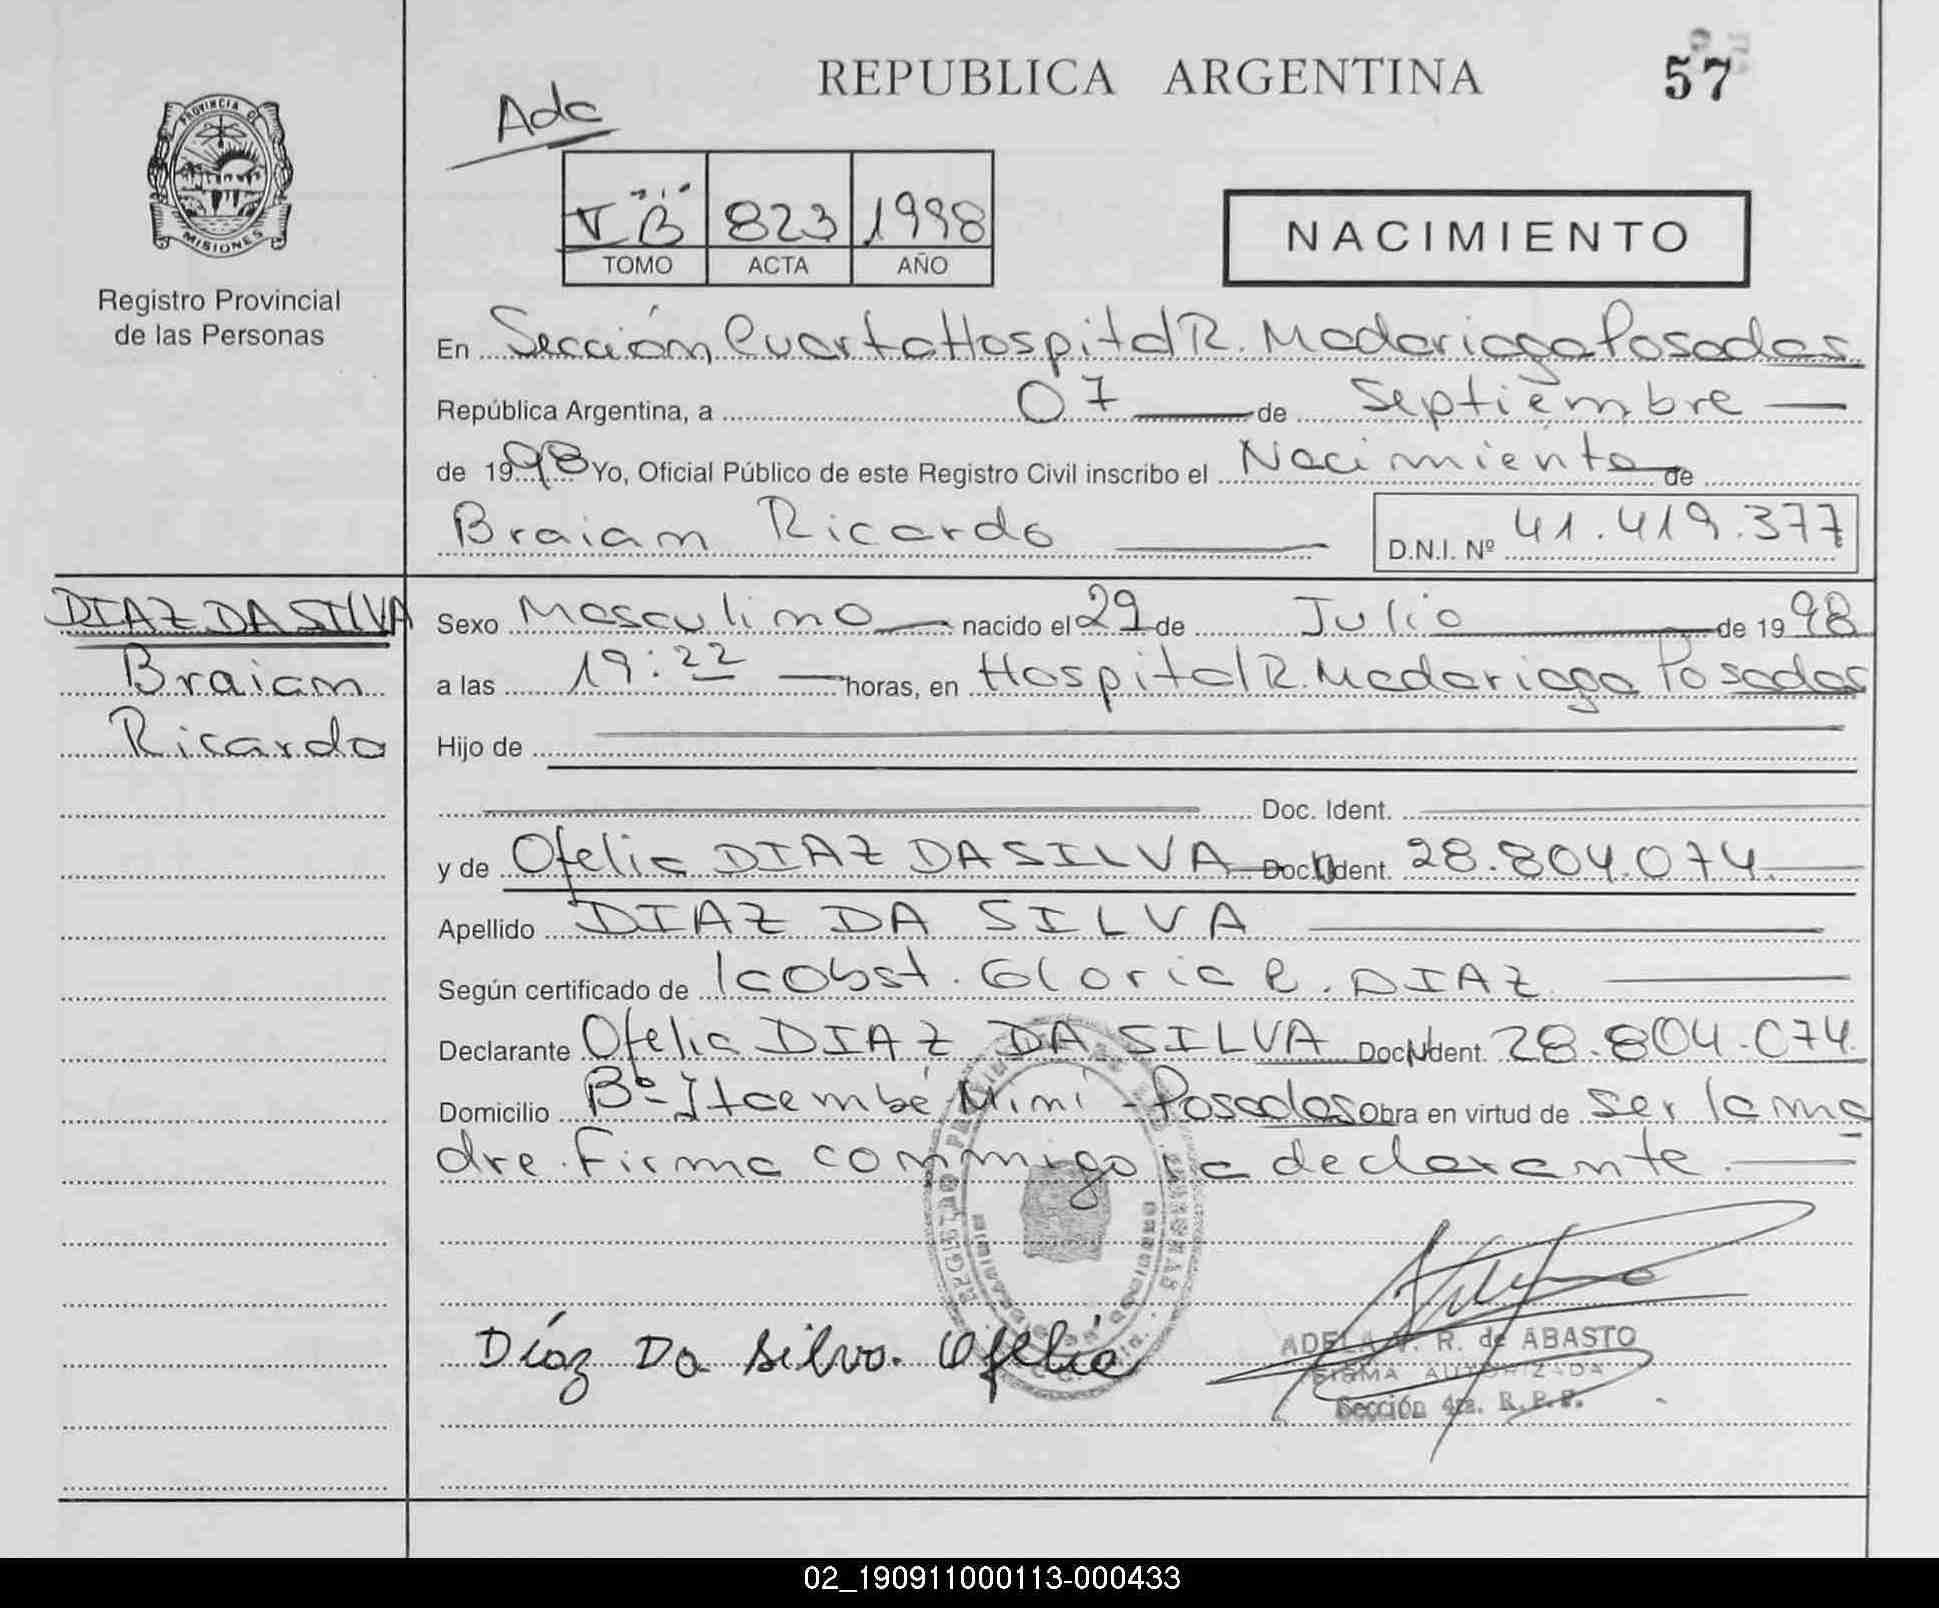 REPUBLICA ARGENTINA
57
Adc
PROVINCIA DE
MISIONES
Registro Provincial
de las Personas
V "B" 823 1998
TOMO ACTA AÑO
NACIMIENTO
En Sección Cuarta Hospital R. Madariaga Posadas
República Argentina, a 07 de Septiembre
de 1998 Yo, Oficial Público de este Registro Civil inscribo el Nacimiento de
Braian Ricardo D.N.I. Nº 41.419.377
DIAZ DA SILVA
Braian
Ricardo
Sexo Masculino nacido el 29 de Julio de 1998
a las 19:22 horas, en Hospital R. Madariaga Posadas
Hijo de
Doc. Ident.
y de Ofelia DIAZ DA SILVA Doc. Ident. 28.804.074
Apellido DIAZ DA SILVA
Según certificado de la Obst. Gloria E. DIAZ
Declarante Ofelia DIAZ DA SILVA Doc. Ident. 28.804.074
Domicilio Bº Itaembé Miní - Posadas Obra en virtud de ser la ma
dre. Firma conmigo la declarante.
Díaz Da Silva. Ofelia
ADELA R. de ABASTO
FIRMA AUTORIZADA
Sección 4ta. R.P.P.
02_190911000113-000433